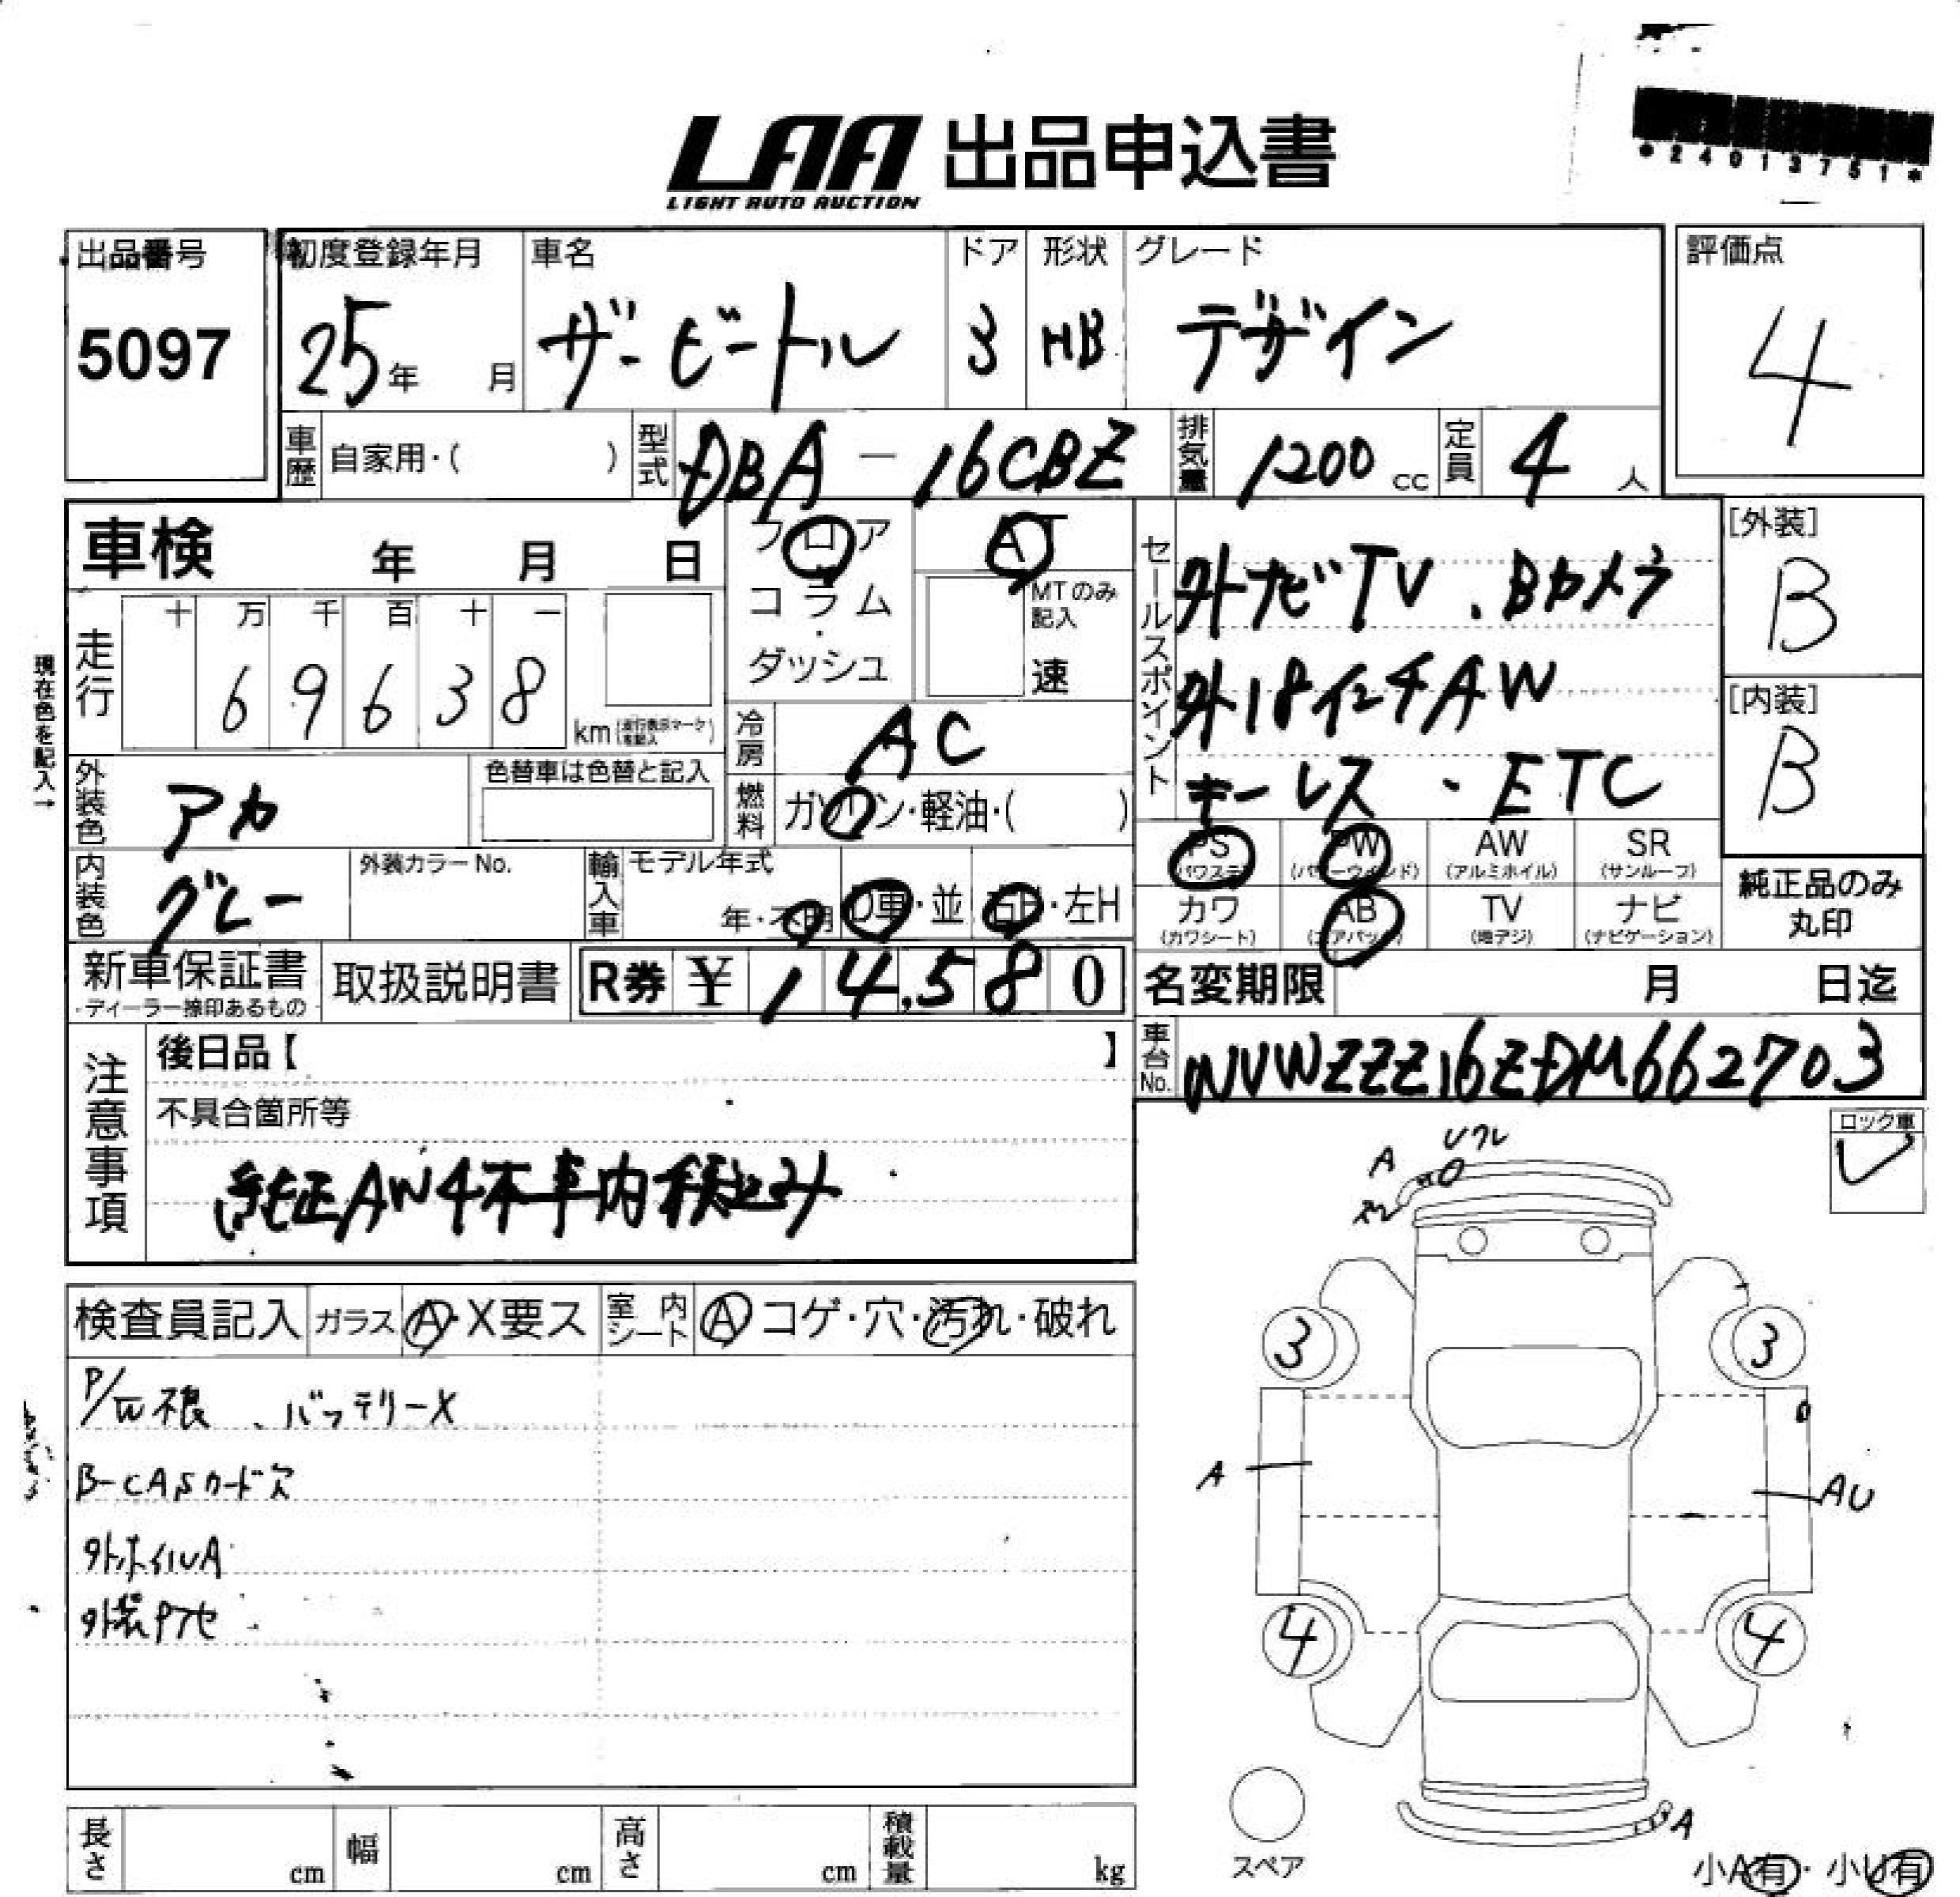 *24013751*
LAA 出品申込書
LIGHT AUTO AUCTION
出品番号
5097
初度登録年月
25年 月
車名
ザ・ビートル
ドア
3
形状
HB
グレード
デザイン
評価点
4
車歴 自家用・( )
型式 DBA-16CBZ
排気量 1200 cc
定員 4 人
車検 年 月 日
フロア
コラム
・
ダッシュ
AT
MTのみ記入
速
現在色を記入→
走行
十 万 千 百 十 一
6 9 6 3 8
km
冷房 AC
燃料 ガソリン・軽油・( )
外装色 アカ
色替車は色替と記入
内装色 グレー
外装カラーNo.
輸入車 モデル年式
年・不明 D車・並 右H・左H
セールスポイント
外ナビTV、Bカメラ
外18インチAW
キーレス・ETC
[外装]
B
[内装]
B
PS (パワステ)
PW (パワーウィンド)
AW (アルミホイル)
SR (サンルーフ)
カワ (カワシート)
AB (エアバック)
TV (地デジ)
ナビ (ナビゲーション)
純正品のみ
丸印
新車保証書
・ディーラー捺印あるもの
取扱説明書
R券 ¥ 14,580
名変期限 月 日迄
車台No. WVWZZZ16ZDM662703
注意事項
後日品【 】
不具合箇所等
純正AW4本車内積込み
ロック車
検査員記入
ガラス A・X要ス
室内シート A コゲ・穴・汚れ・破れ
P/W不良、バッテリーX
B-CASカード欠
外ホイルA
A
3
3
A
AU
4
4
A
スペア
小A有・小U有
長さ cm
幅 cm
高さ cm
積載量 kg